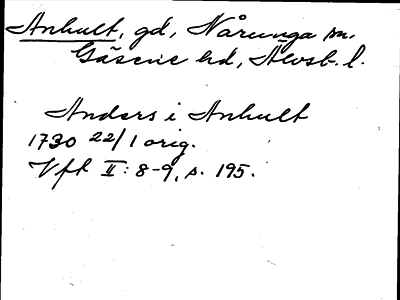 Anhult, gd, Nårunga sn.
Gäsene hd, Älvsb. l.
Anders i Anhult
1730 22/1 orig.
Vft II: 8-9, s. 195.